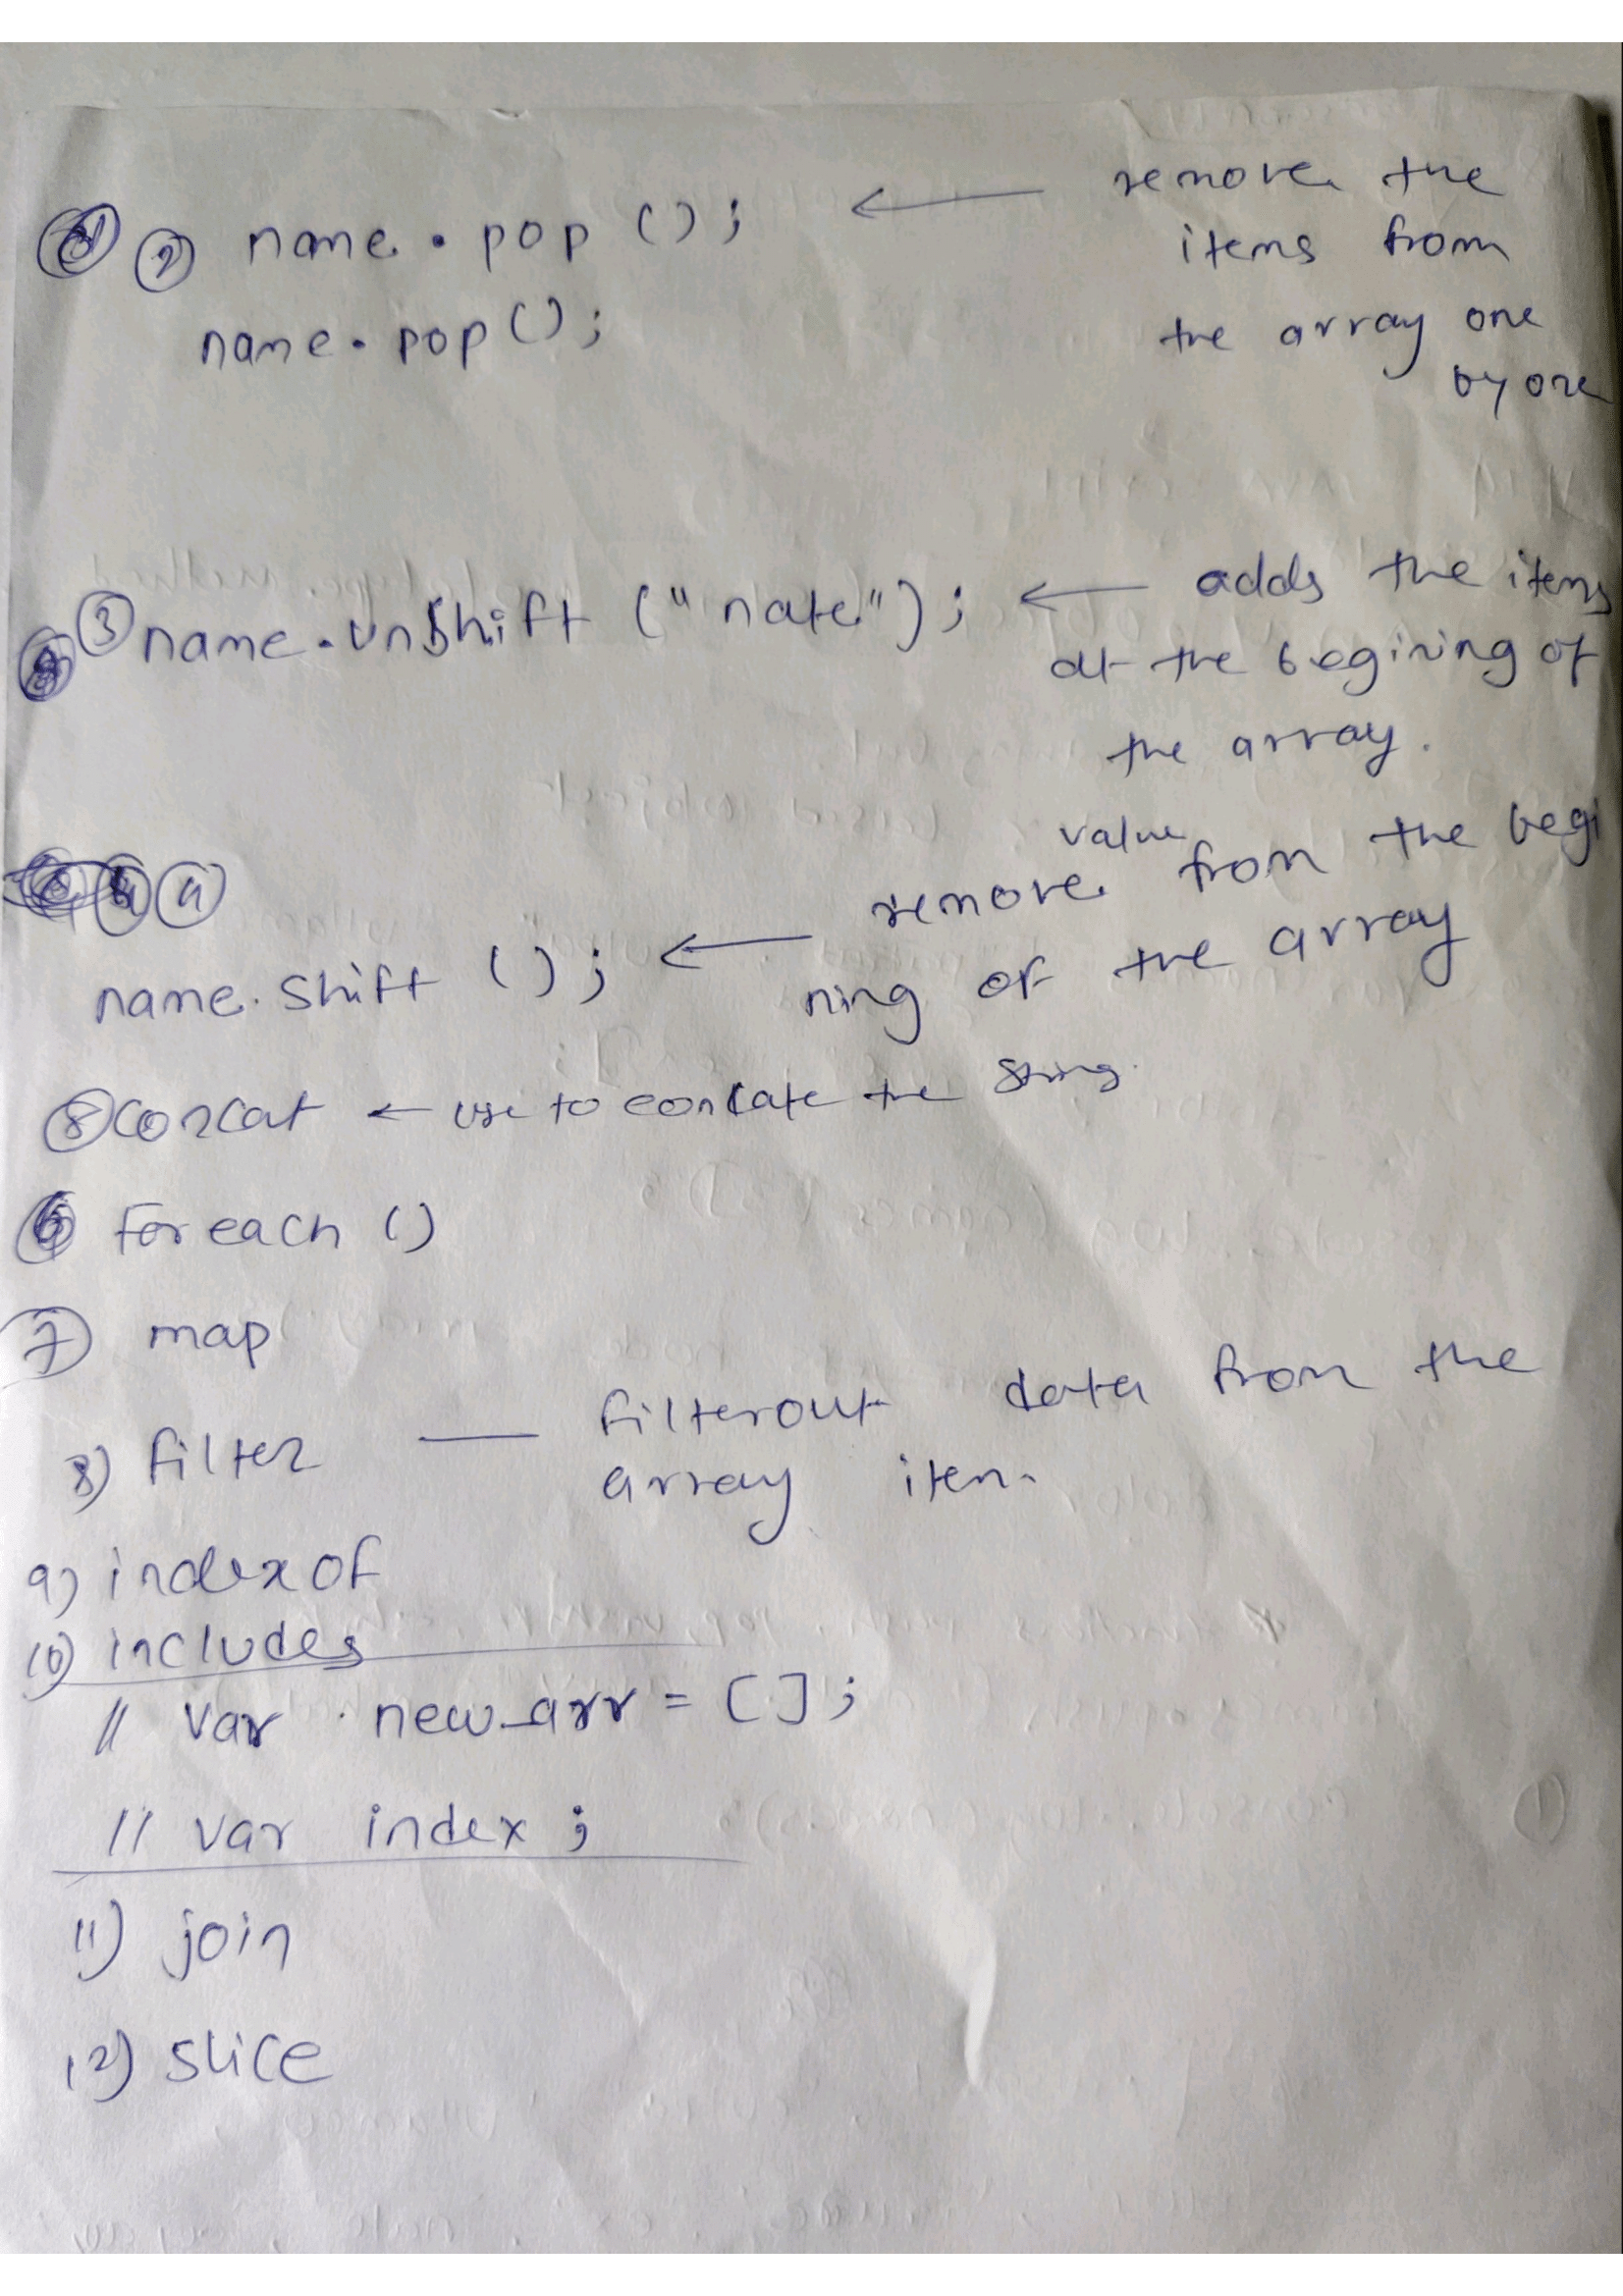 ② name.pop(); ← remove the
items from
name.pop();
the array one
by one
③ name.unshift ("nate"); ← adds the items
at the begining of
the array.
④
value
name.shift (); ← remove from the begi
ning of the array
⑧ concat ← use to concate the string.
⑥ foreach ()
⑦ map
8) filter — filterout data from the
array item.
9) indexof
10) includes
// var new_arr = [];
// var index ;
11) join
12) slice